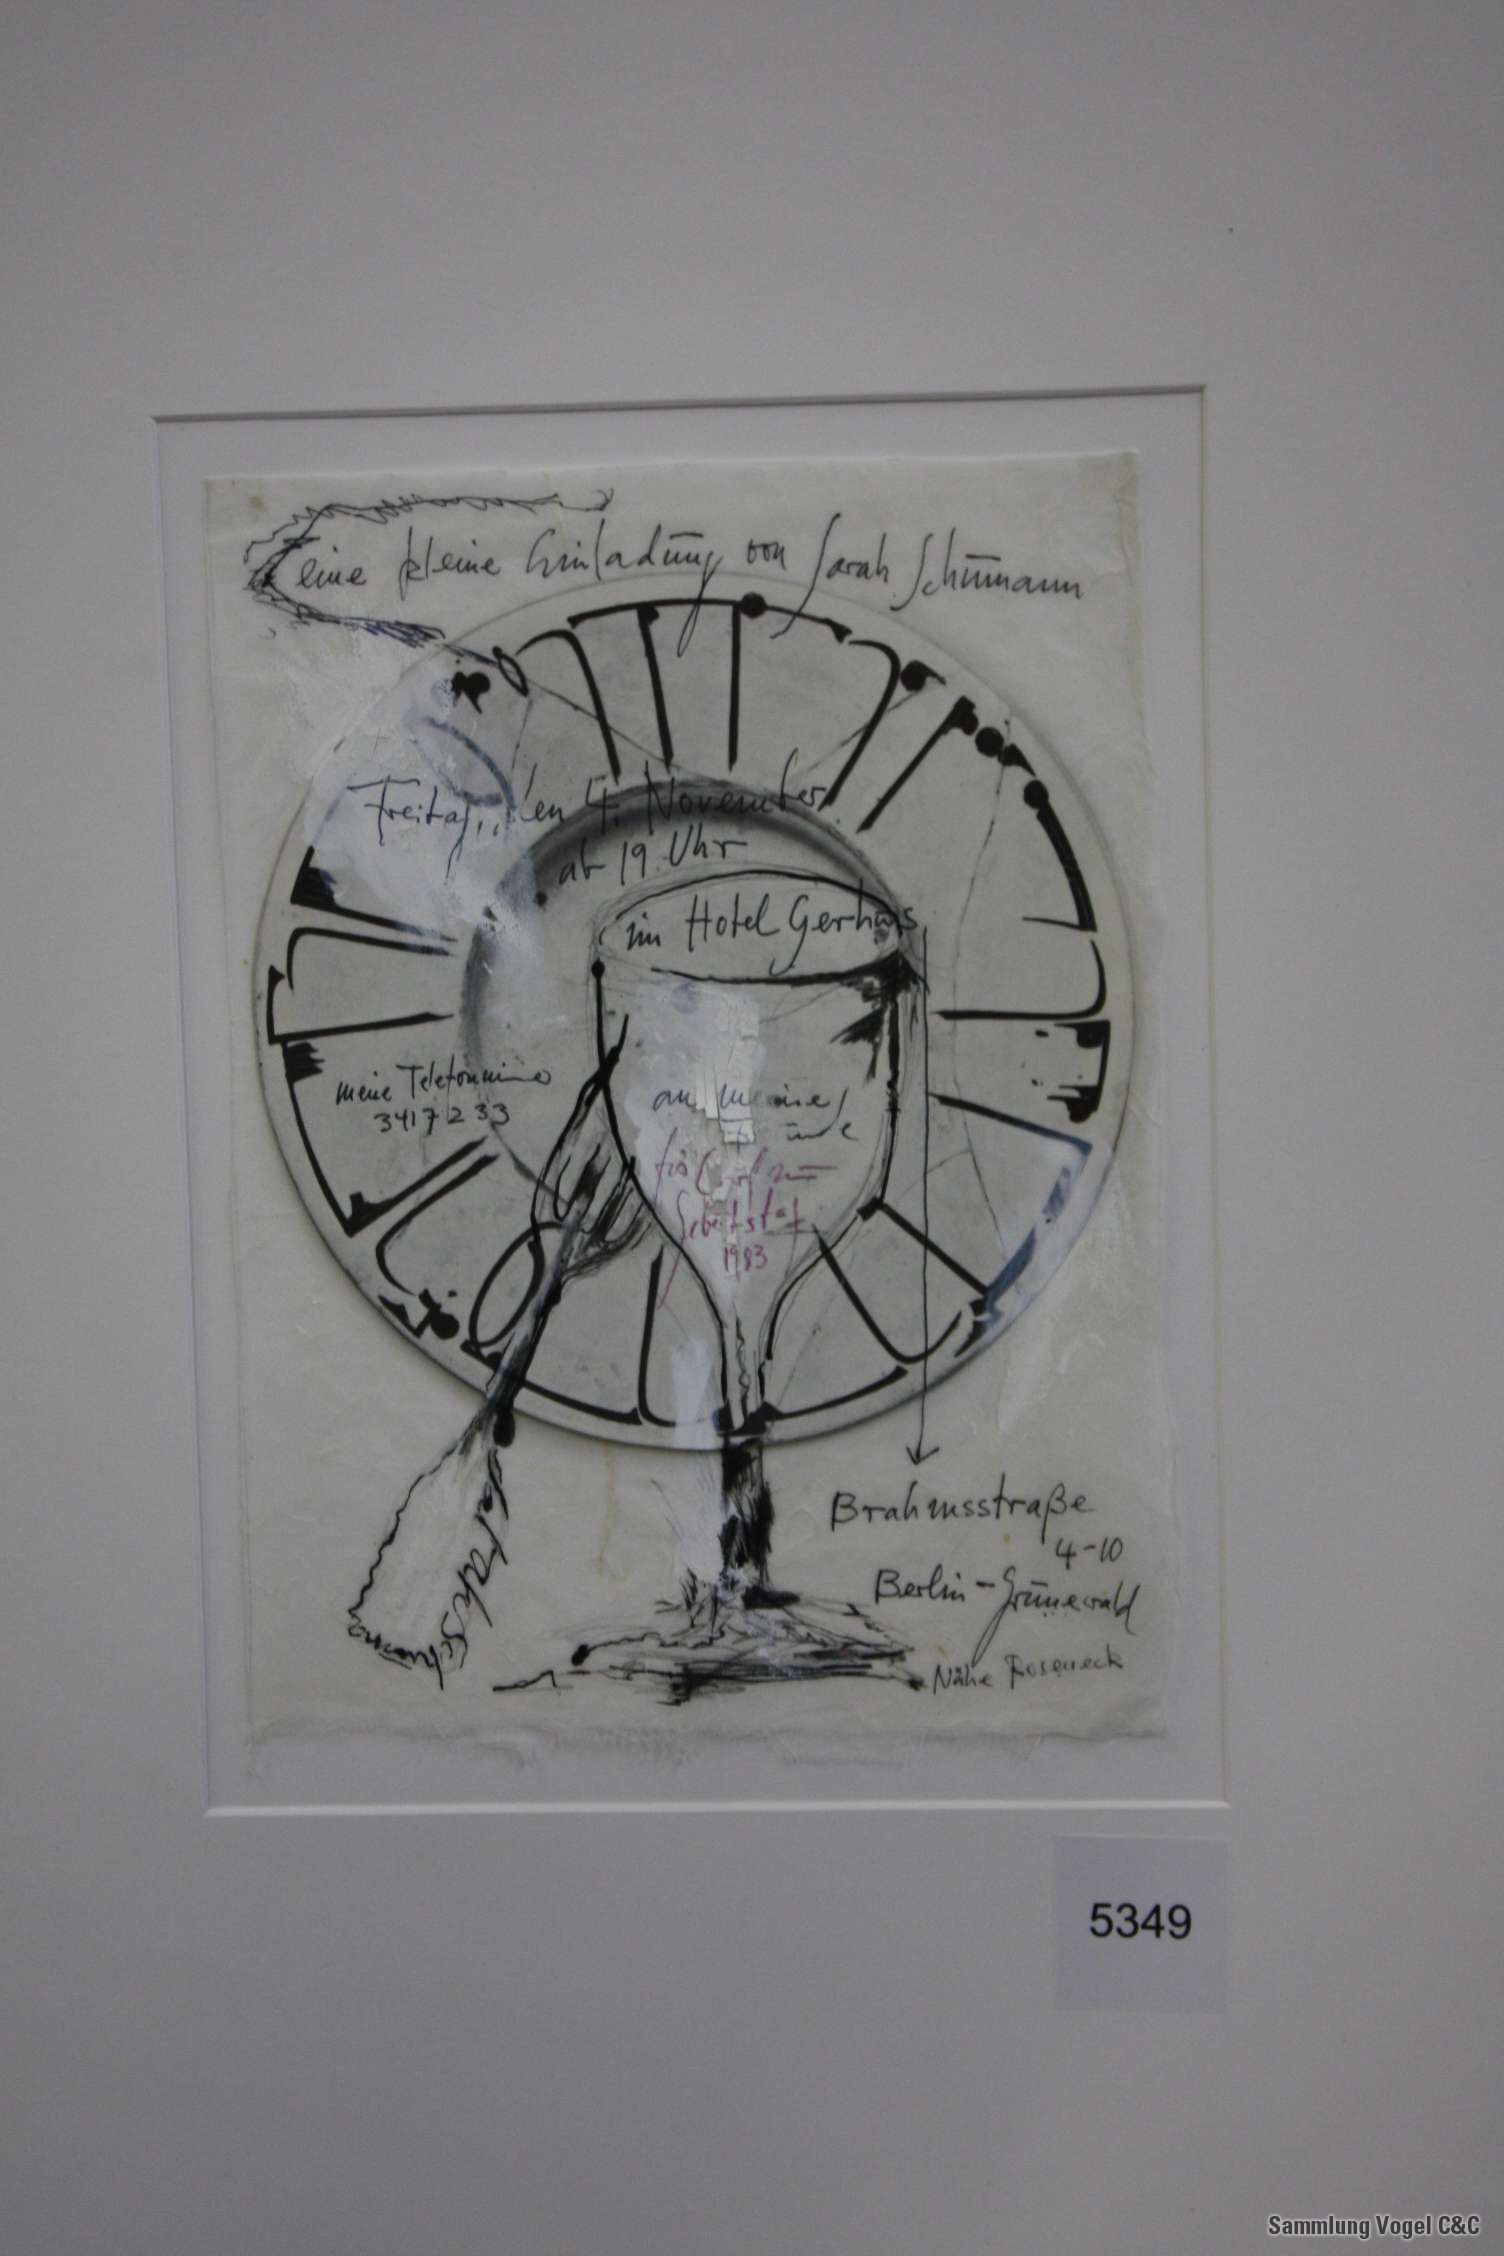 eine kleine Einladung von Sarah Schumann
Freitag, den 4. November
ab 19 Uhr
im Hotel Gerhus
meine Telefonnummer
3417233
an meine
1983
Brahmsstraße
4-10
Berlin-Grunewald
Nähe Roseneck
5349
Sammlung Vogel C&C